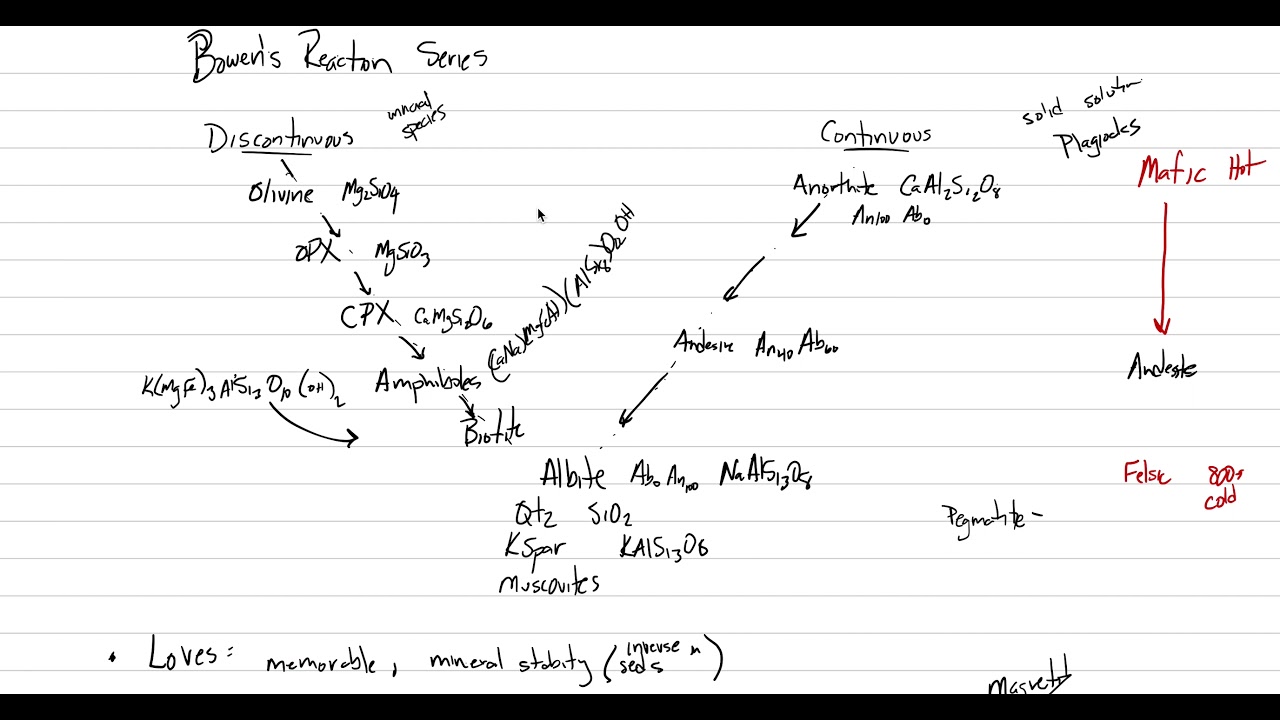 Bowen's Reaction Series
Discontinuous
mineral species
Olivine Mg2SiO4
OPX MgSiO3
CPX CaMgSi2O6
Amphiboles
K(MgFe)3AlSi3O10(OH)2
Biotite
Continuous
solid solution
Anorthite CaAl2Si2O8
An100 Ab0
An40 Ab60
Albite Ab0 An100 NaAlSi3O8
Qtz SiO2
KSpar KAlSi3O8
Muscovites
Mafic Hot
Felsic 800s
cold
Pegmatite -
• Loves: memorable, mineral stability (inverse n
seds)